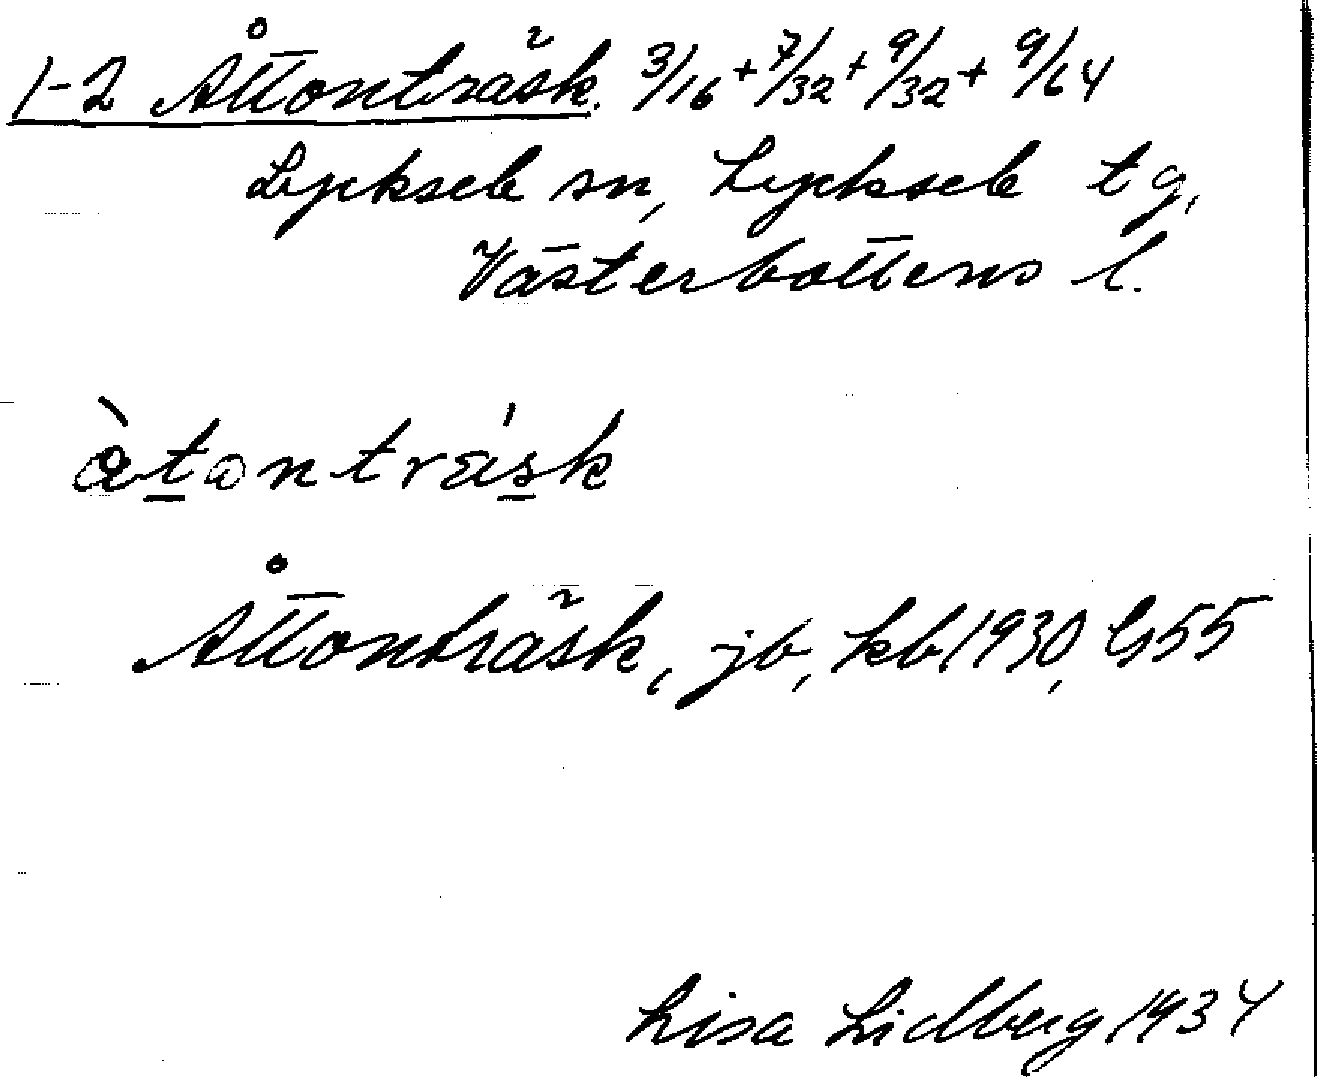 1-2 Åttonträsk. 3/16 + 7/32 + 9/32 + 9/64
Lycksele sn, Lycksele tg,
Västerbottens l.
àtontrásk
Åttonträsk, jb, kb 1930, G 55
Lisa Lidberg 1934